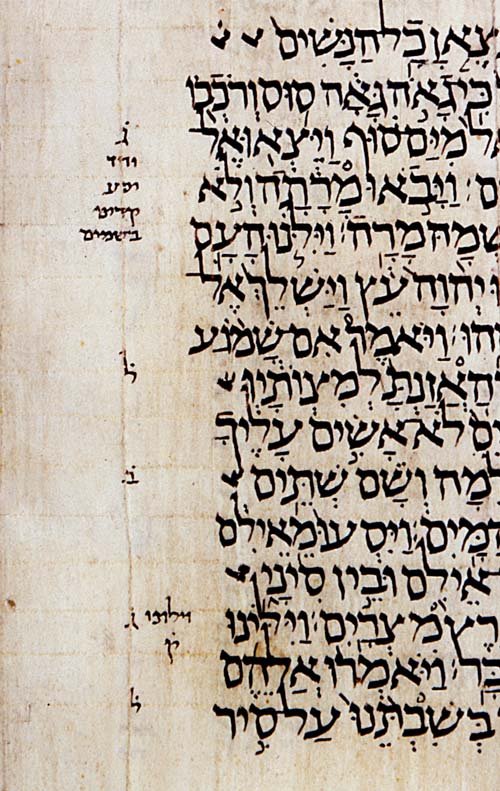 צְאןָ כָל הַנָּשִׁים
כִּי גָאֹה גָּאָה סוּס וְרֹכְבוֹ
אֶל מִיַּם סוּף וַיֵּצְאוּ אֶל
ם וַיָּבֹאוּ מָרָתָה וְלֹא
שְׁמָהּ מָרָה וַיִּלֹּנוּ הָעָם
וּ יְהוָה עֵץ וַיַּשְׁלֵךְ אֶל
הוּ וַיֹּאמֶר אִם שָׁמוֹעַ
הַאֲזַנְתָּ לְמִצְוֹתָיו
ים לֹא אָשִׂים עָלֶיךָ
למָה וְשָׁם שְׁתֵּים
הַמָּיִם וַיִּסְעוּ מֵאֵילִם
אֵילִם וּבֵין סִינָי
רֶץ מִצְרָיִם וַיִּלִּינוּ
בָּר וַיֹּאמְרוּ אֲלֵהֶם
בְּשִׁבְתֵּנוּ עַל סִיר
ג
קדימו
בשמים
ל
ב
וילונו ג
ק
ל